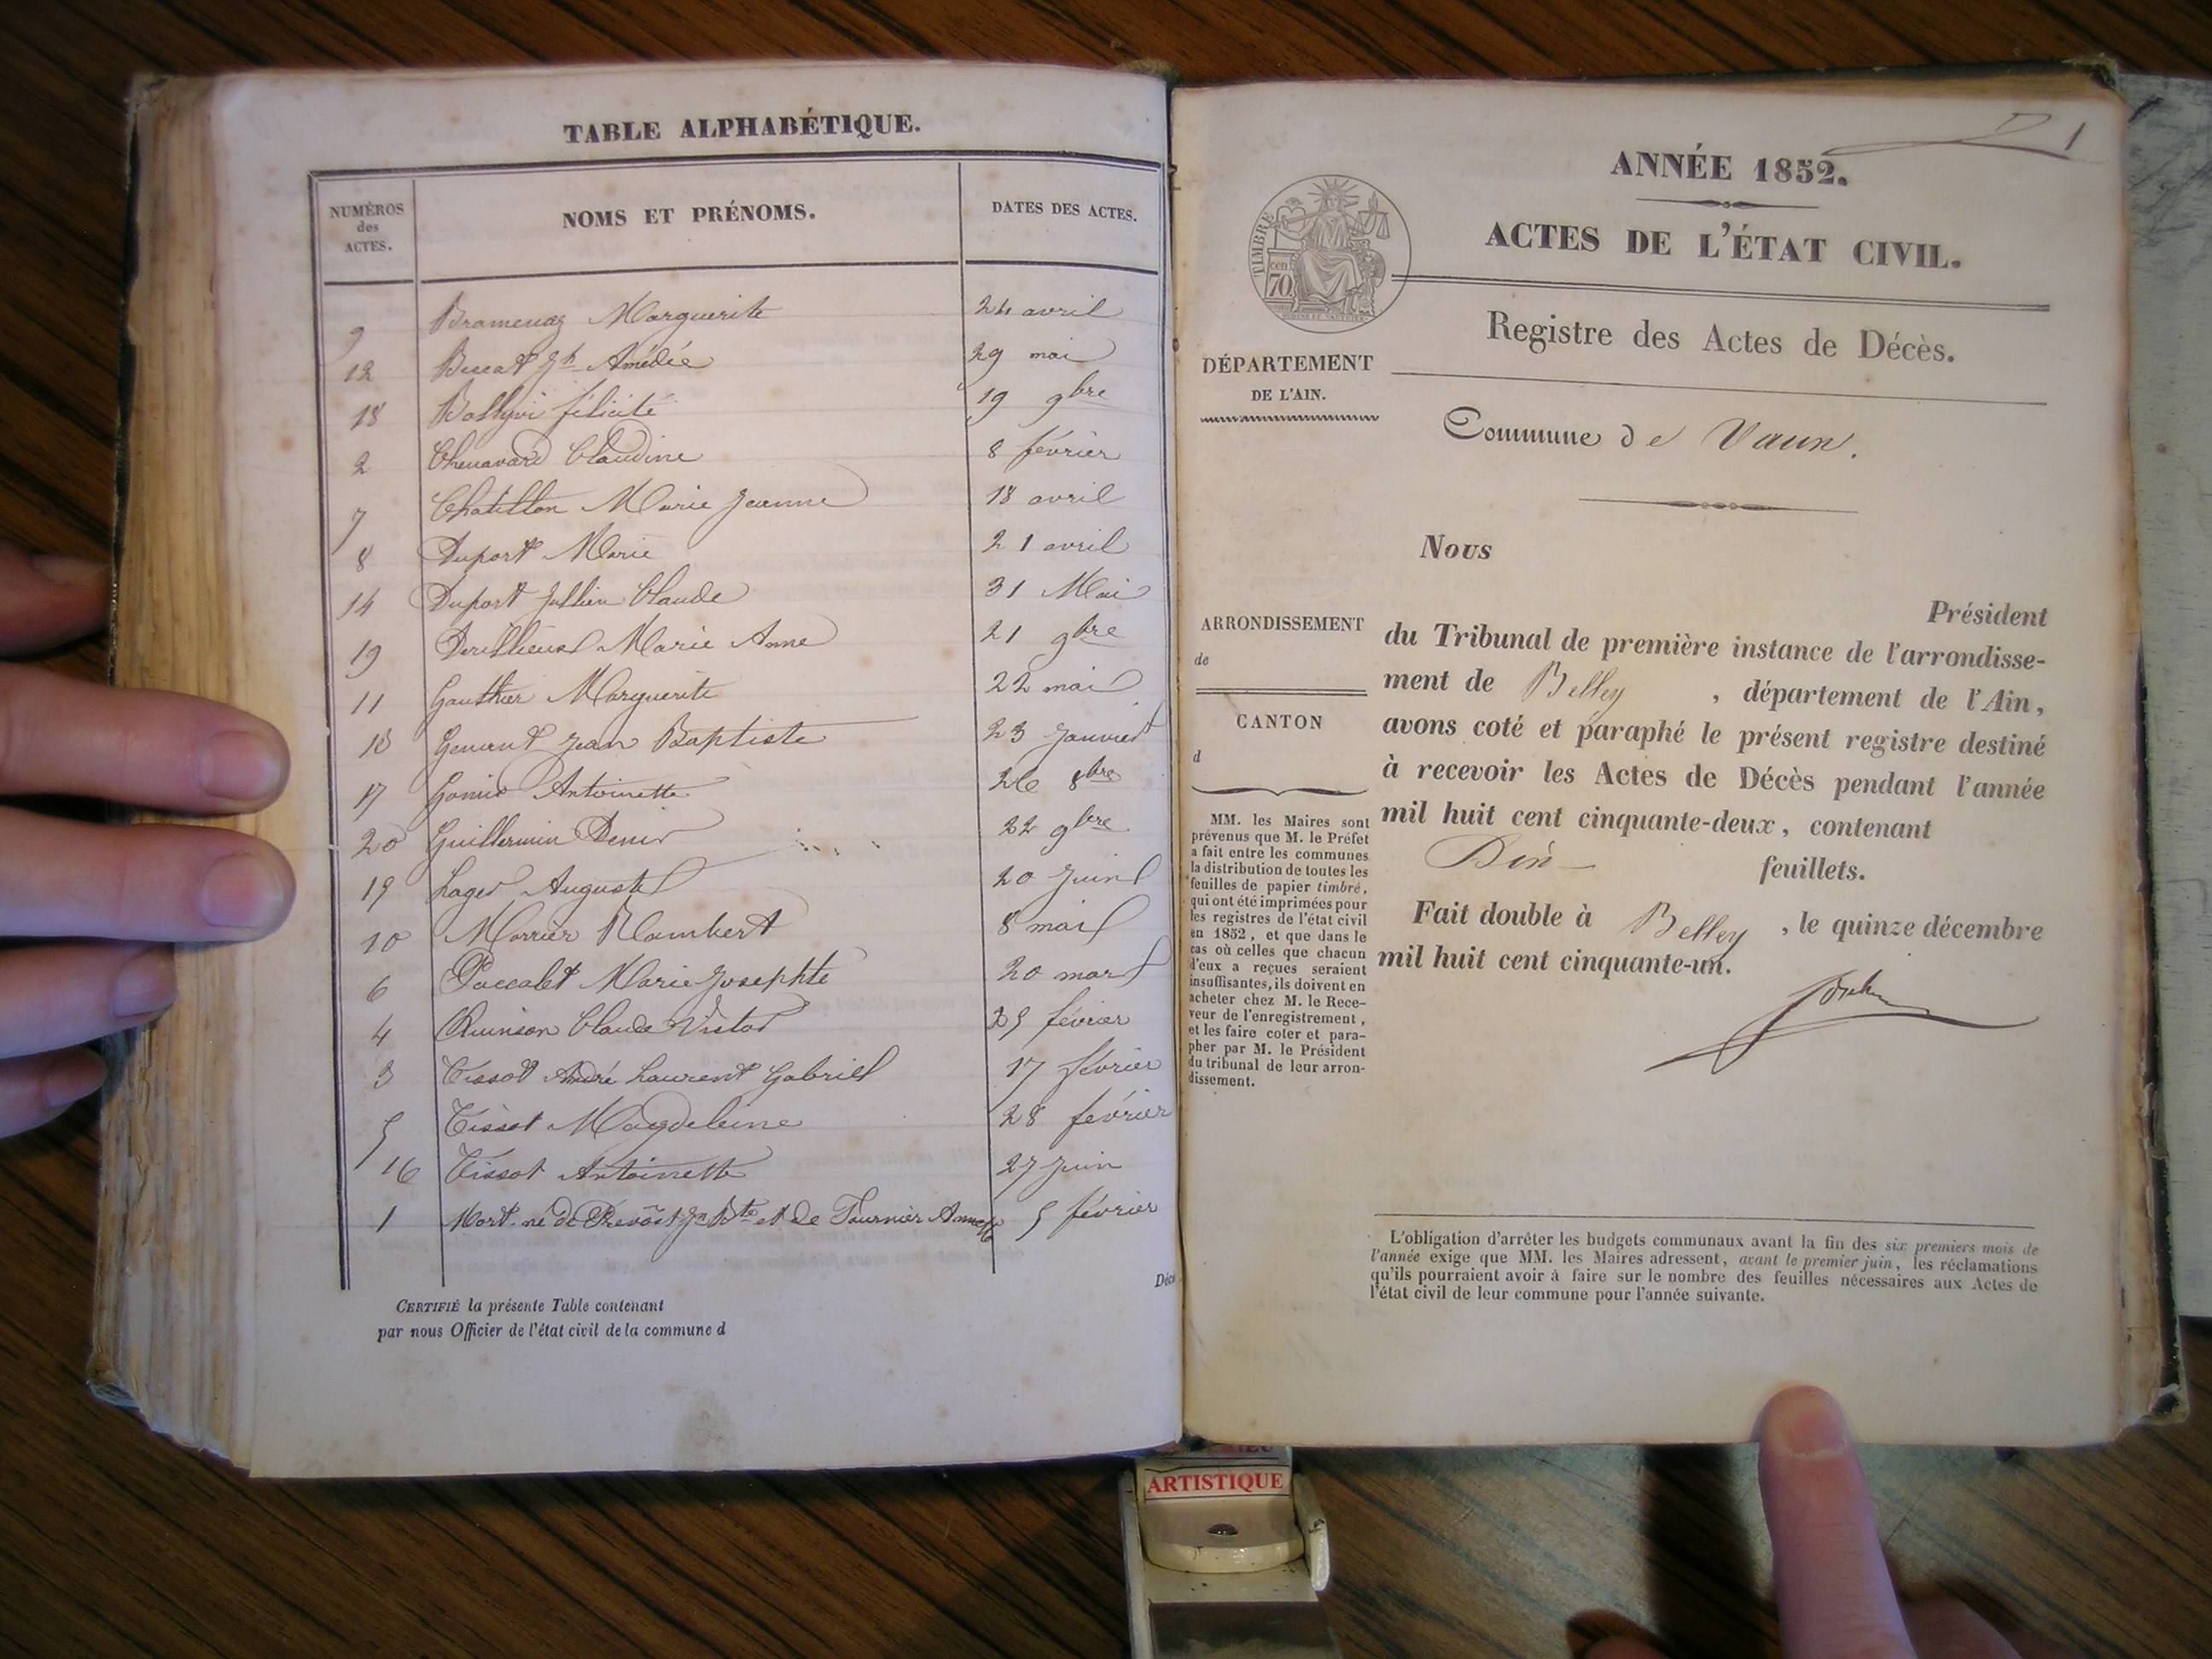 TABLE ALPHABÉTIQUE.
NUMÉROS des ACTES. NOMS ET PRÉNOMS. DATES DES ACTES.
9 Bramenaz Marguerite 24 avril
12 Amédée 29 mai
18 félicité 19 9bre
2 Chenavard Claudine 8 février
7 Chatillon Marie Jeanne 18 avril
8 Duport Marie 21 avril
14 Duport Jullien Claude 31 Mai
19 Marie Anne 21 9bre
11 Gauthier Marguerite 22 mai
13 Jean Baptiste 23 Janvier
17 Antoinette 26 8bre
20 Guillermin Denis 22 9bre
Lager Auguste 20 Juin
10 Morrier Rambert 8 mai
6 Paccalet Marie Josephte 20 mars
4 Quinson Claude Victor 25 février
3 Tissot André Laurent Gabriel 17 février
5 Tissot Magdeleine 28 février
16 Tissot Antoinette 27 Juin
1 Mort-né de Prevost Jn Bte et de Tournier Annette 5 février
Déc
CERTIFIÉ la présente Table contenant
par nous Officier de l'état civil de la commune d
1
ANNÉE 1852.
ACTES DE L'ÉTAT CIVIL.
TIMBRE
70 cen
Registre des Actes de Décès.
DÉPARTEMENT
DE L'AIN.
Commune de Vaux.
Nous
Président
ARRONDISSEMENT
de
CANTON
d
du Tribunal de première instance de l'arrondisse-
ment de Belley , département de l'Ain,
avons coté et paraphé le présent registre destiné
à recevoir les Actes de Décès pendant l'année
mil huit cent cinquante-deux, contenant
feuillets.
Fait double à Belley , le quinze décembre
mil huit cent cinquante-un.
MM. les Maires sont
prévenus que M. le Préfet
a fait entre les communes
la distribution de toutes les
feuilles de papier timbré,
qui ont été imprimées pour
les registres de l'état civil
en 1852, et que dans le
cas où celles que chacun
d'eux a reçues seraient
insuffisantes, ils doivent en
acheter chez M. le Rece-
veur de l'enregistrement,
et les faire coter et para-
pher par M. le Président
du tribunal de leur arron-
dissement.
L'obligation d'arrêter les budgets communaux avant la fin des six premiers mois de
l'année exige que MM. les Maires adressent, avant le premier juin, les réclamations
qu'ils pourraient avoir à faire sur le nombre des feuilles nécessaires aux Actes de
l'état civil de leur commune pour l'année suivante.
ARTISTIQUE